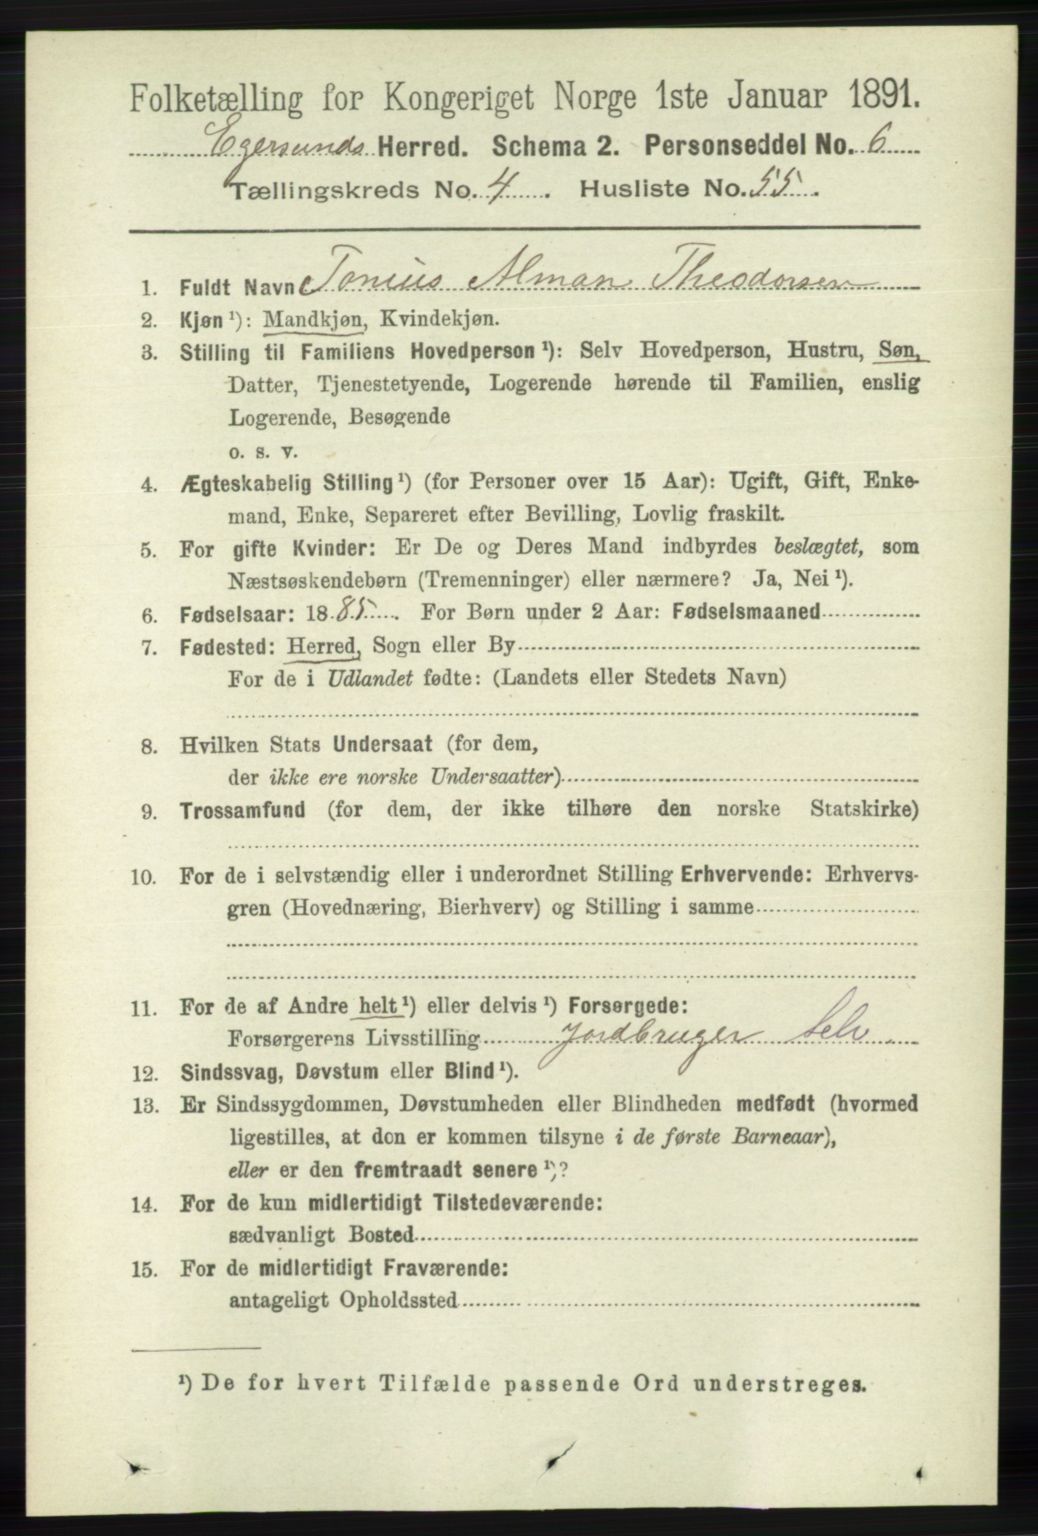 Folketælling for Kongeriget Norge 1ste Januar 1891.
Egersunds Herred. Schema 2. Personseddel No. 6
Tællingskreds No. 4. Husliste No. 55.
1. Fuldt Navn Tonius Alman Theodorsen
2. Kjøn ¹): Mandkjøn, Kvindekjøn.
3. Stilling til Familiens Hovedperson ¹): Selv Hovedperson, Hustru, Søn,
Datter, Tjenestetyende, Logerende hørende til Familien, enslig
Logerende, Besøgende
o. s. v.
4. Ægteskabelig Stilling ¹) (for Personer over 15 Aar): Ugift, Gift, Enke-
mand, Enke, Separeret efter Bevilling, Lovlig fraskilt.
5. For gifte Kvinder: Er De og Deres Mand indbyrdes beslægtet, som
Næstsøskendebørn (Tremenninger) eller nærmere? Ja, Nei ¹).
6. Fødselsaar: 1885. For Børn under 2 Aar: Fødselsmaaned
7. Fødested: Herred, Sogn eller By
For de i Udlandet fødte: (Landets eller Stedets Navn)
8. Hvilken Stats Undersaat (for dem,
der ikke ere norske Undersaatter)
9. Trossamfund (for dem, der ikke tilhøre den norske Statskirke)
10. For de i selvstændig eller i underordnet Stilling Erhvervende: Erhvervs-
gren (Hovednæring, Bierhverv) og Stilling i samme
11. For de af Andre helt ¹) eller delvis ¹) Forsørgede:
Forsørgerens Livsstilling Jordbruger Selv
12. Sindssvag, Døvstum eller Blind ¹).
13. Er Sindssygdommen, Døvstumheden eller Blindheden medfødt (hvormed
ligestilles, at den er kommen tilsyne i de første Barneaar),
eller er den fremtraadt senere ¹)?
14. For de kun midlertidigt Tilstedeværende:
sædvanligt Bosted
15. For de midlertidigt Fraværende:
antageligt Opholdssted
¹) De for hvert Tilfælde passende Ord understreges.